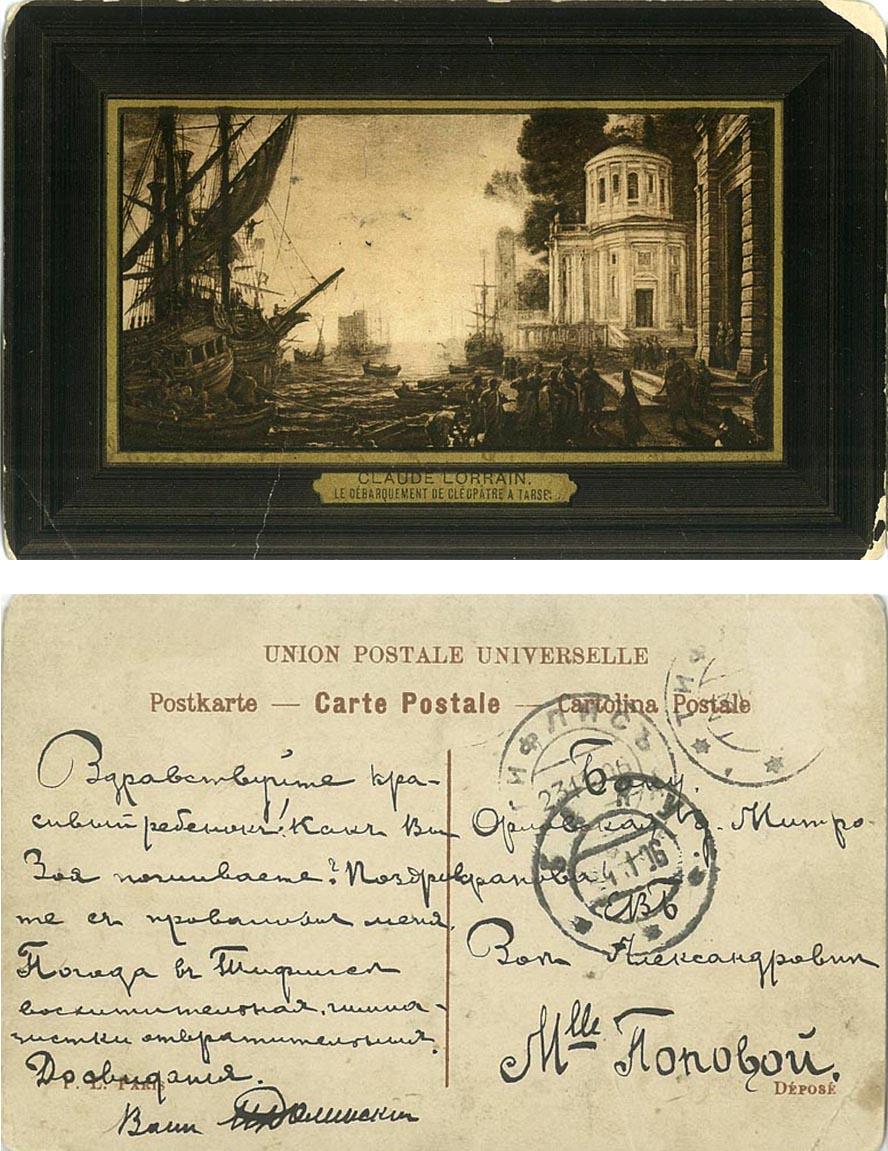 CLAUDE LORRAIN.
LE DÉBARQUEMENT DE CLÉOPÂTRE A TARSE.
UNION POSTALE UNIVERSELLE
Postkarte — Carte Postale — Cartolina Postale
Здравствуйте кра-
сивый ребенокъ! Какъ Вы
Зоя поживаете? Поздравляй-
те съ проваломъ меня.
Погода въ Тифлисѣ
восхитительная, гимна-
зистки отвратительныя.
Досвиданія.
Вашъ
P. L. PARIS
ТИФЛИСЪ
БАКУ
Баку.
Орловская д. Митро-
фанова
ЕВБ
Зоѣ Александровнѣ
Mlle Поповой.
DÉPOSÉ